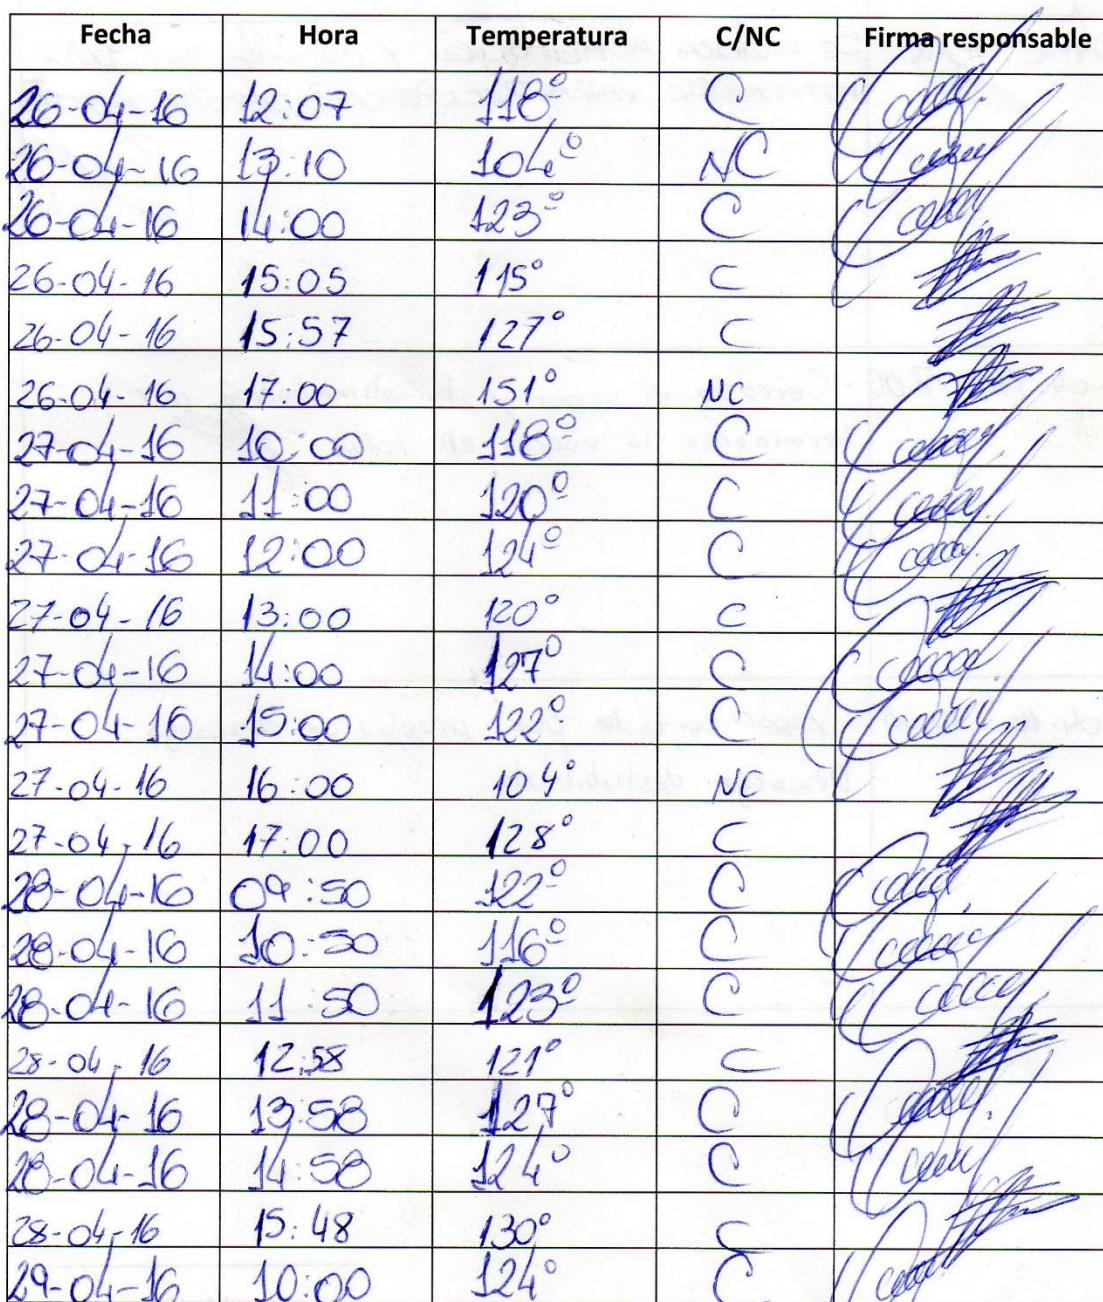 Fecha Hora Temperatura C/NC Firma responsable
26-04-16 12:07 118º C
26-04-16 13:10 104º NC
26-04-16 14:00 123º C
26-04-16 15:05 115° C
26-04-16 15:57 127° C
26-04-16 17:00 151° NC
27-04-16 10:00 118º C
27-04-16 11:00 120º C
27-04-16 12:00 124º C
27-04-16 13:00 120° C
27-04-16 14:00 127° C
27-04-16 15:00 122º C
27-04-16 16:00 104° NC
27-04-16 17:00 128° C
28-04-16 09:50 122º C
28-04-16 10:50 116º C
28-04-16 11:50 123º C
28-04-16 12:58 121° C
28-04-16 13:58 127° C
28-04-16 14:58 124° C
28-04-16 15:48 130° C
29-04-16 10:00 124° C